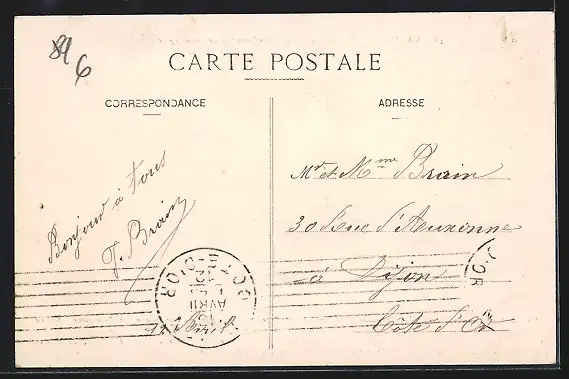 89
6
CARTE POSTALE
CORRESPONDANCE
ADRESSE
Bonjour à tous
F. Brain
Mr et Mme Brain
30 Rue d'Auxonne
à Dijon
Côte d'Or
CÔTE-D'OR
AVRIL
D'OR